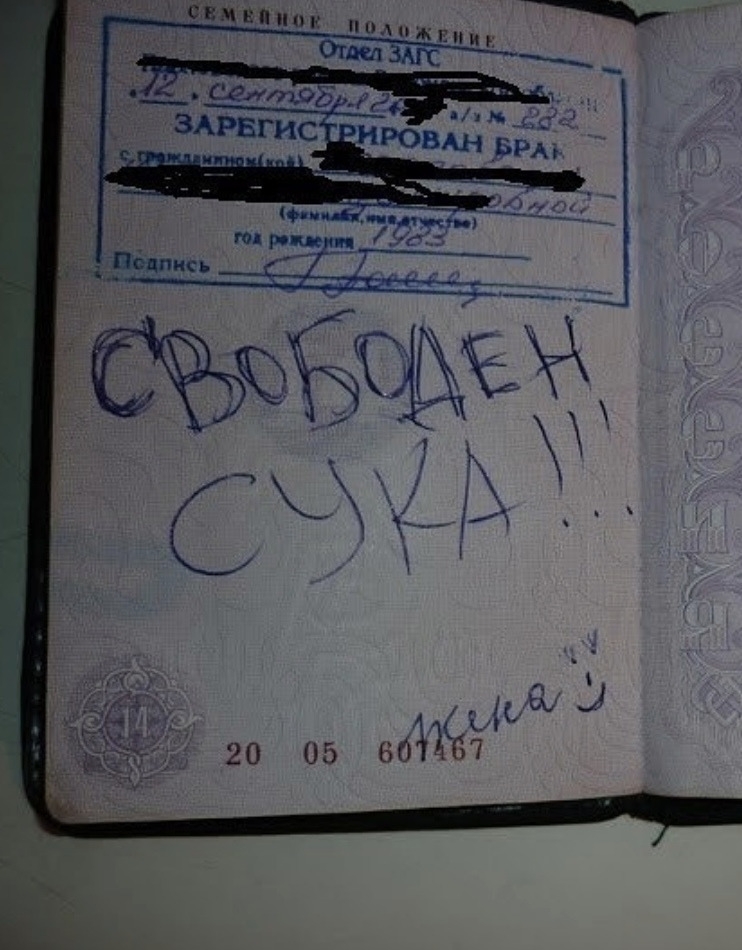 СЕМЕЙНОЕ ПОЛОЖЕНИЕ
Отдел ЗАГС
12 сентября 2 а/з № 232
ЗАРЕГИСТРИРОВАН БРАК
с гражданином(кой)
(фамилия, имя, отчество)
год рождения 1983
Подпись
СВОБОДЕН
СУКА!!!
жена
14
20 05 607467